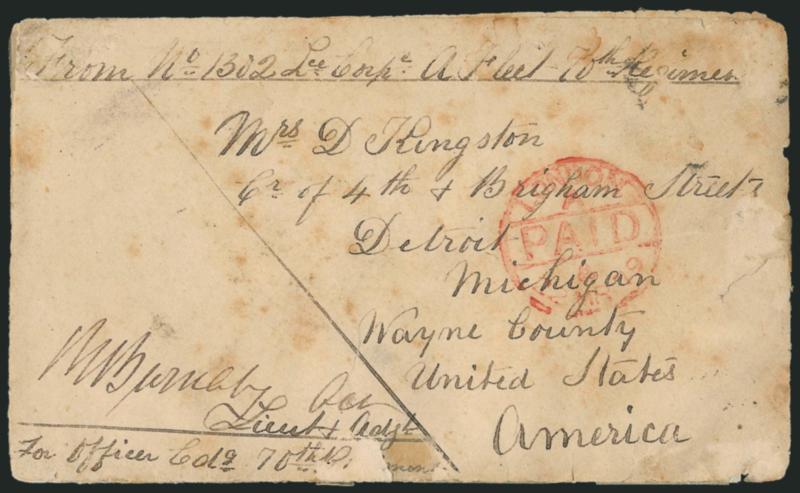 From No 1302 Lce Corpe A Fleet 70th Regimen
Mrs D Kingston
Cr of 4th & Brigham Streets
Detroit
Michigan
Wayne County
United States
America
LONDON
PAID
Burnaby
Lieut & Adjt
For Officer Cdg 70th R ment